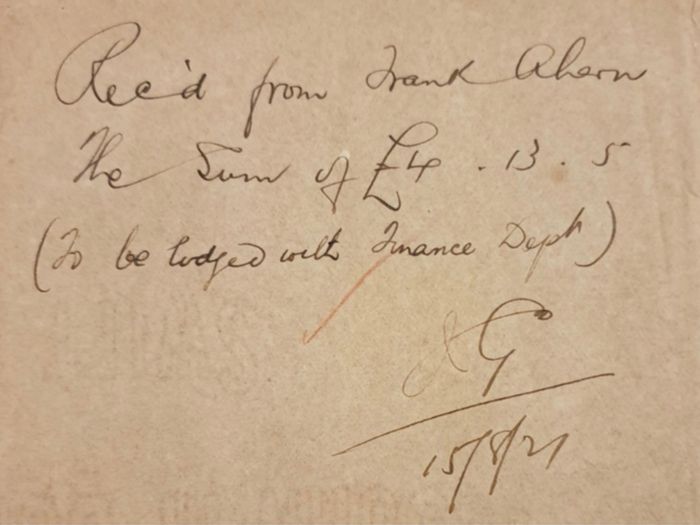 Rec'd from Frank Ahern
The Sum of £4 . 13 . 5
(To be lodged with Finance Dept)
G
15/8/21